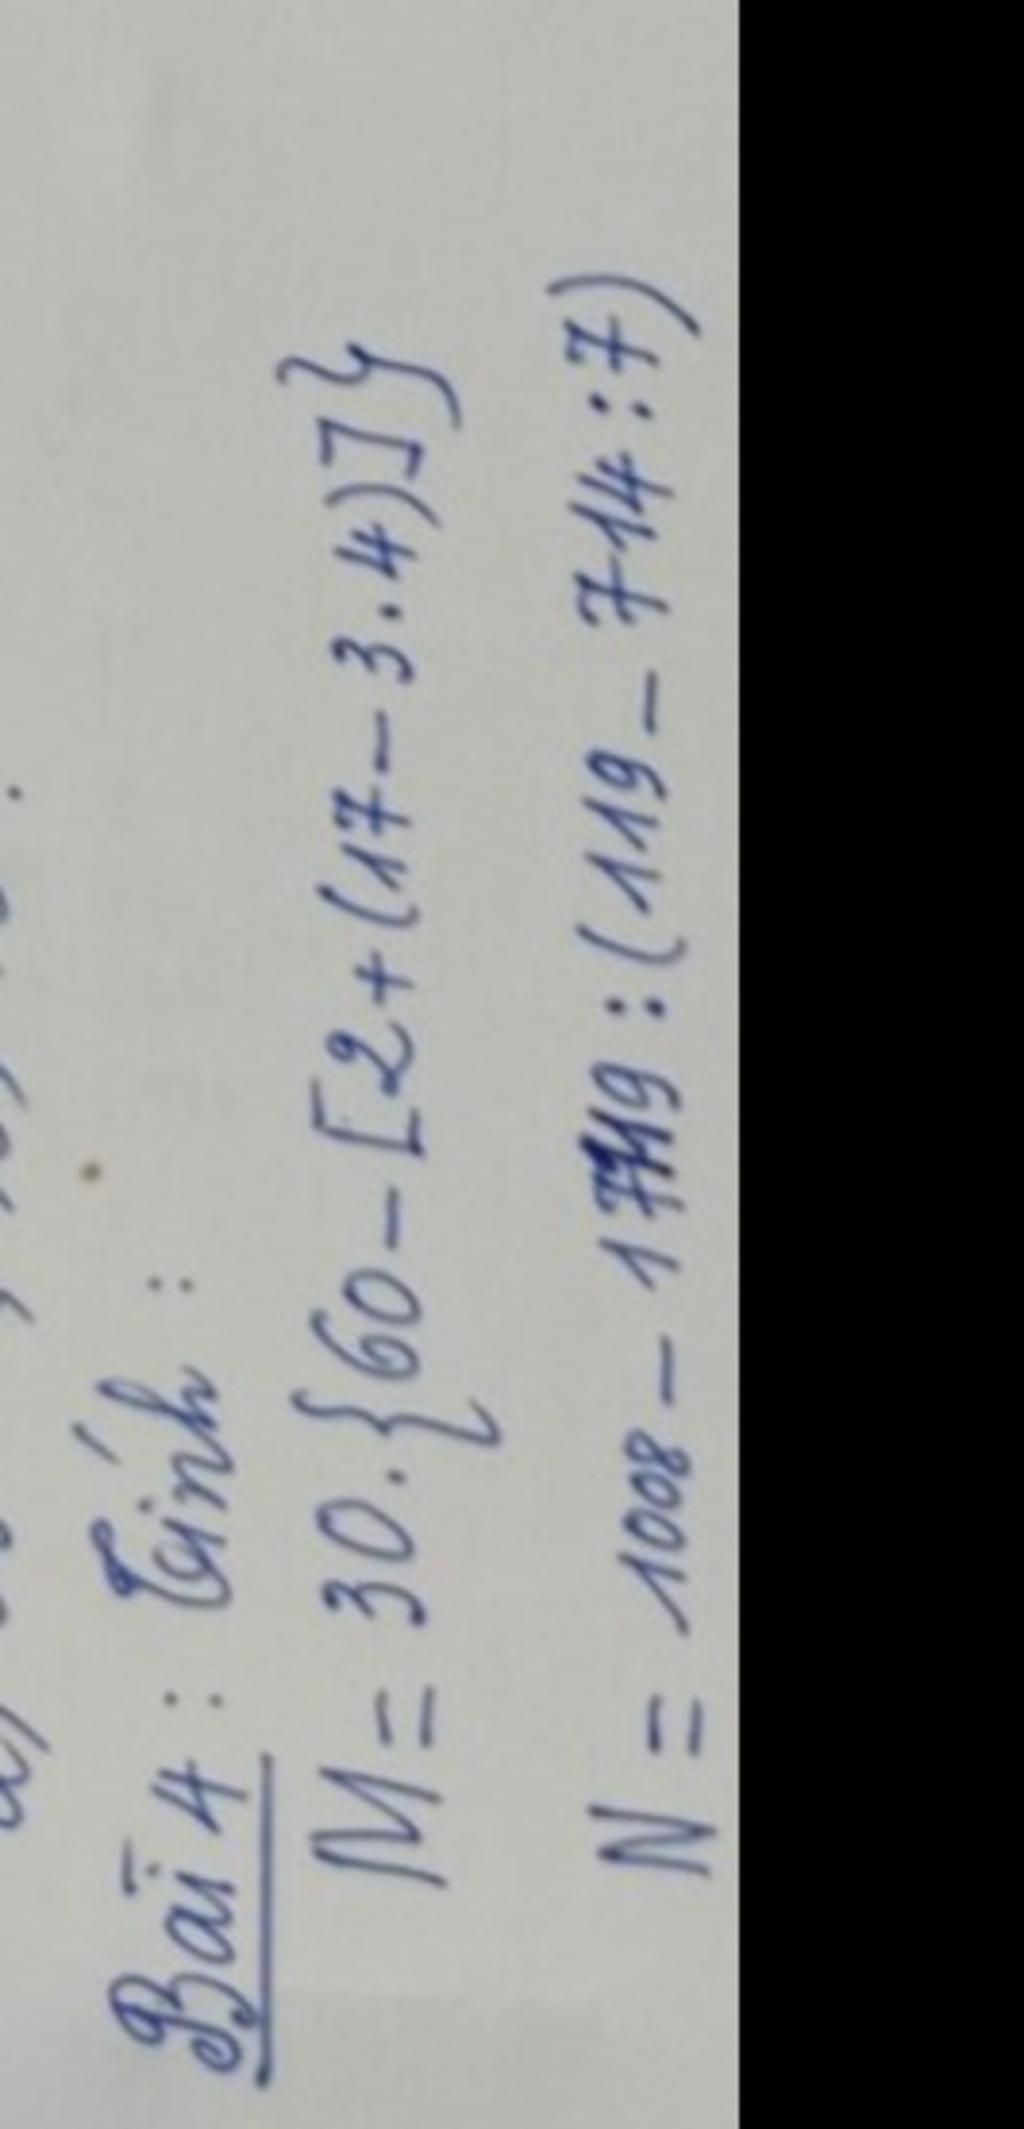 Bài 4 : Tính :
M = 30.{60-[2+(17-3.4)]}
N = 1008 - 1719 : (119 - 714 : 7)